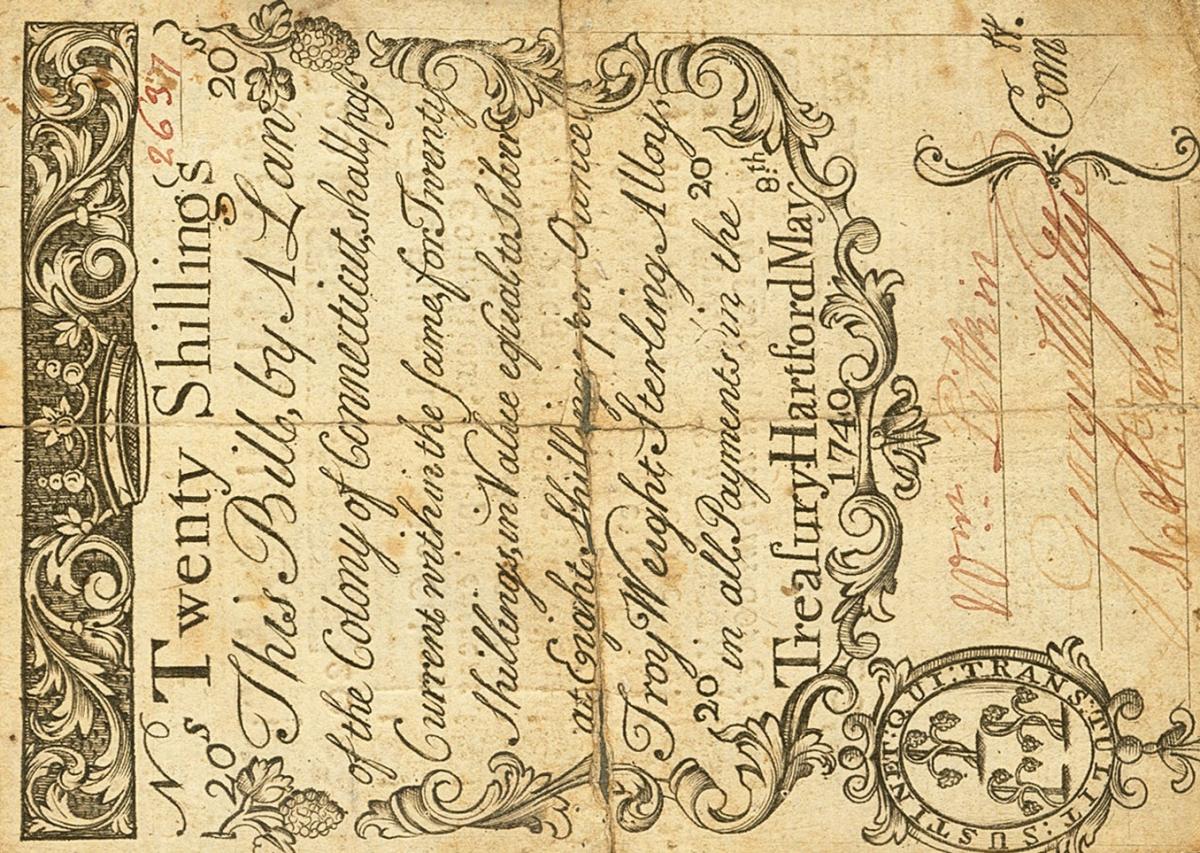 N (2637)
20s Twenty Shillings 20s
This Bill, by A Law
of the Colony of Connecticut, shall pass
Current within the same, for Twenty
Shillings, in Value equal to Silver
at Eight Shillings per Ounce,
Troy Weight, Sterling Alloy,
20 in all Payments, in the 20
Treaſury. Hartford May 8th.
1740
SUSTINET·QUI·TRANSTULIT:
Wm Pitkin
George Wyllys
Com tt.